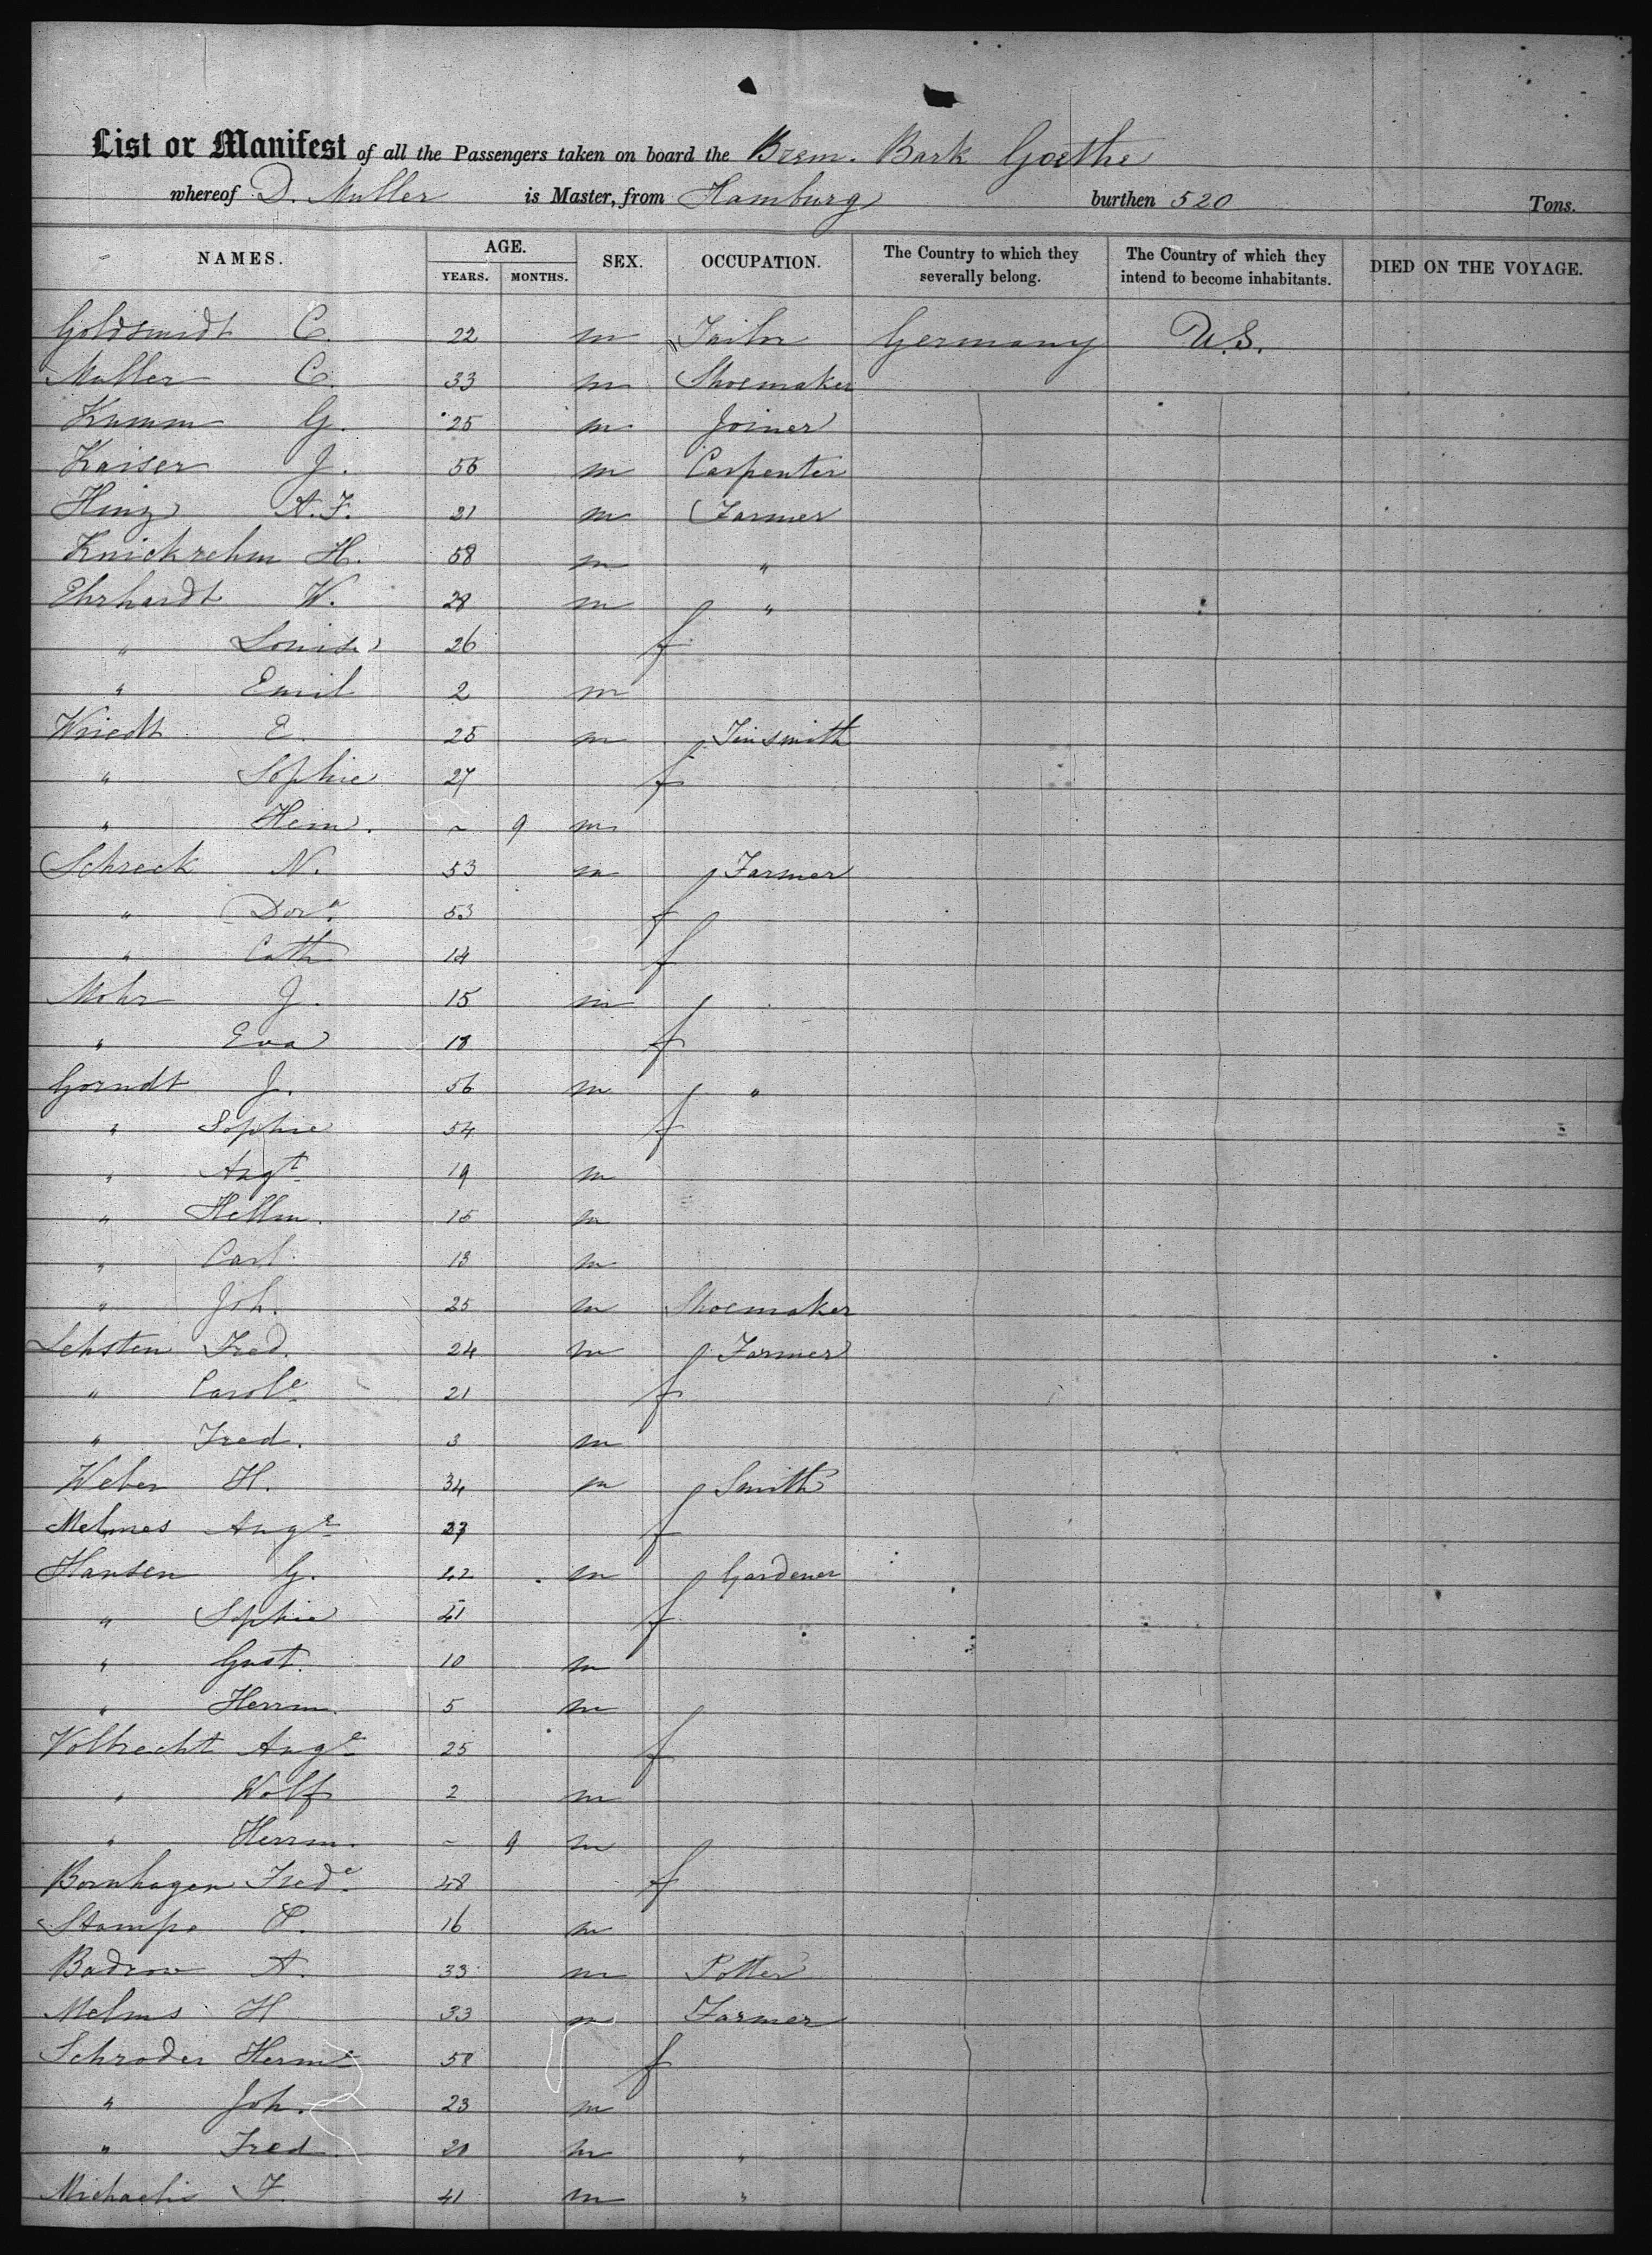 List or Manifest of all the Passengers taken on board the Brem. Bark Goethe
whereof D. Muller is Master, from Hamburg burthen 520 Tons.
NAMES. AGE. SEX. OCCUPATION. The Country to which they severally belong. The Country of which they intend to become inhabitants. DIED ON THE VOYAGE.
YEARS. MONTHS.
Goldsmidt C. 22 m Tailor Germany U.S.
Muller C. 33 m Shoemaker
Kumm G. 25 m Joiner
Kaiser J. 56 m Carpenter
Hinz A.F. 21 m Farmer
Knickrehm H. 58 m "
Ehrhardt W. 28 m "
" Louise 26 f
" Emil 2 m
Wriedt E. 25 m Tinsmith
" Sophie 27 f
" Hein. ~ 9 m
Schreck N. 53 m Farmer
" Dora. 53 f
" Cath 14 f
Mohr J. 15 m
" Eva 18 f
Gorndt J. 56 m "
" Sophie 54 f
" Augt. 19 m
" Hellm. 15 m
" Carl 13 m
" Joh. 25 m Shoemaker
Lehsten Fred. 24 m Farmer
" Carole. 21 f
" Fred. 3 m
Weber H. 34 m Smith
Melmes Auge. 27 f
Hansen G. 42 m Gardener
" Sophie 41 f
" Gust. 10 m
" Herrm. 5 m
Volbrecht Auge. 25 f
" Wolf 2 m
" Herrm. - 9 m
Bornhagen Frede. 48 f
Stampe P. 16 m
Badrow A. 33 m Potter
Melms H 33 m Farmer
Schroder Herme. 58 f
" Joh. 23 m
" Fred 20 m "
Michaelis F. 41 m "